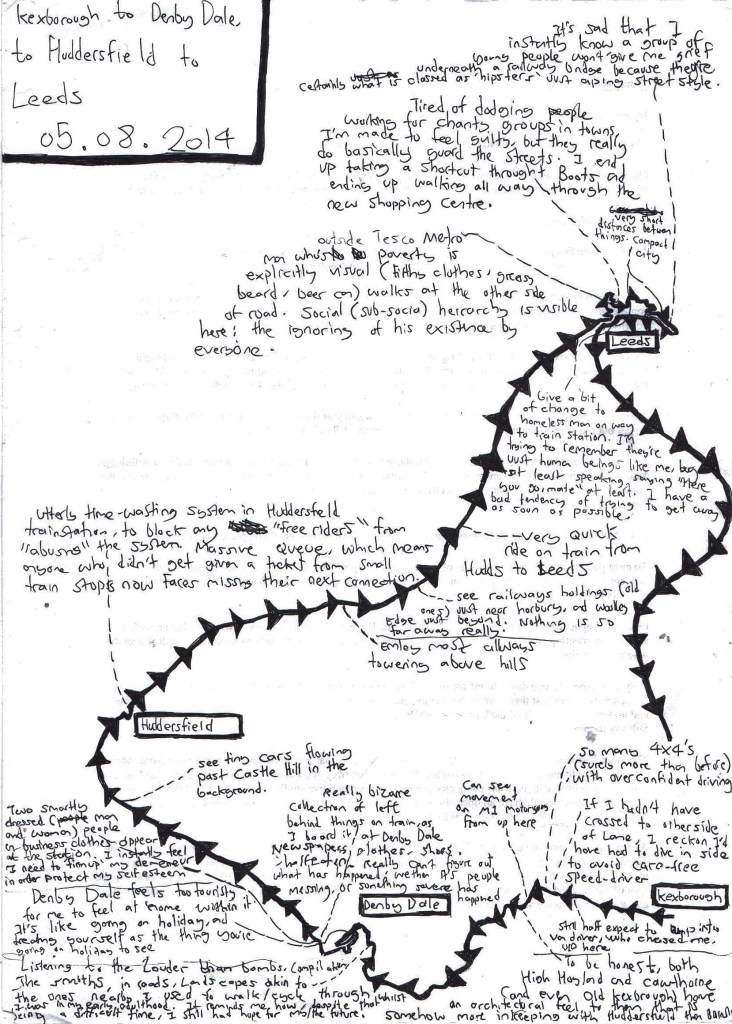 Kexborough to Denby Dale
to Huddersfield to
Leeds
05.08.2014
It's sad that I
instantly know a group of
young people won't give me grief
underneath a railway bridge because they're
certainly what is classed as "hipsters" just aping street style.
Tired of dodging people
working for charity groups in towns
I'm made to feel guilty, but they really
do basically guard the streets. I end
up taking a shortcut throught Boots and
ending up walking all way through the
new shopping centre.
very short
distances between
things. Compact
city
outside Tesco Metro
man who's poverty is
explicitly visual (filthy clothes, greasy
beard, beer can) walks at the other side
of road. Social (sub-social) heirarchy is visible
here; the ignoring of his existence by
everyone.
Leeds
Give a bit
of change to
homeless man on way
to train station. I'm
trying to remember they're
just human beings like me, by
at least speaking, saying "Here
you go, mate" at least. I have a
bad tendency of trying to get away
as soon as possible.
Utterly time-wasting system in Huddersfield
trainstation, to block any "free riders" from
"abusing" the system. Massive queue, which means
anyone who didn't get given a ticket from small
train stops now faces missing their next connection.
very quick
ride on train from
Hudds to Leeds
see railways holdings (old
ones) just near horbury, and woolley
Edge just beyond. Nothing is so
far away really.
Emley mast allways
towering above hills
Huddersfield
see tiny cars flowing
past Castle Hill in the
background.
Two smartly
dressed (man
and woman) people
in business clothes appear
at the station. I instantly feel
I need to my demeneur
in order protect my self esteem
Really bizarre
collection of left
behind things on train, as
I board it at Denby Dale
Newspapers, clothes, shoes,
half eaten really can't figure out
what has happened; wether it's people
messing, or something severe has
happened
Can see
movement
on M1 motorway
from up here
So many 4x4's
(surely more than before)
with overconfident driving
If I hadn't have
crossed to otherside
of Lane, I reckon I'd
have had to dive in side
to avoid care-free
speed-driver
Kexborough
Denby Dale
Denby Dale feels too touristy
for me to feel at home within it
It's like going on holiday, and
treating yourself as the thing you're
going on holiday to see
Still half expect to bump into
van driver, who chased me,
up here
Listening to the Louder than bombs, compilation
The smiths, in roads, landscapes akin to
the ones nearby I used to walk/cycle through whilst
in my early adulthood. It reminds me how, despite that
being a difficult time, I still had hope for my/the future.
To be honest, both
High Hoyland and Cawthorne
(and even Old Kexbrough) have
an architectural feel to them that is
somehow more inkeeping with Huddersfield than Barnsley